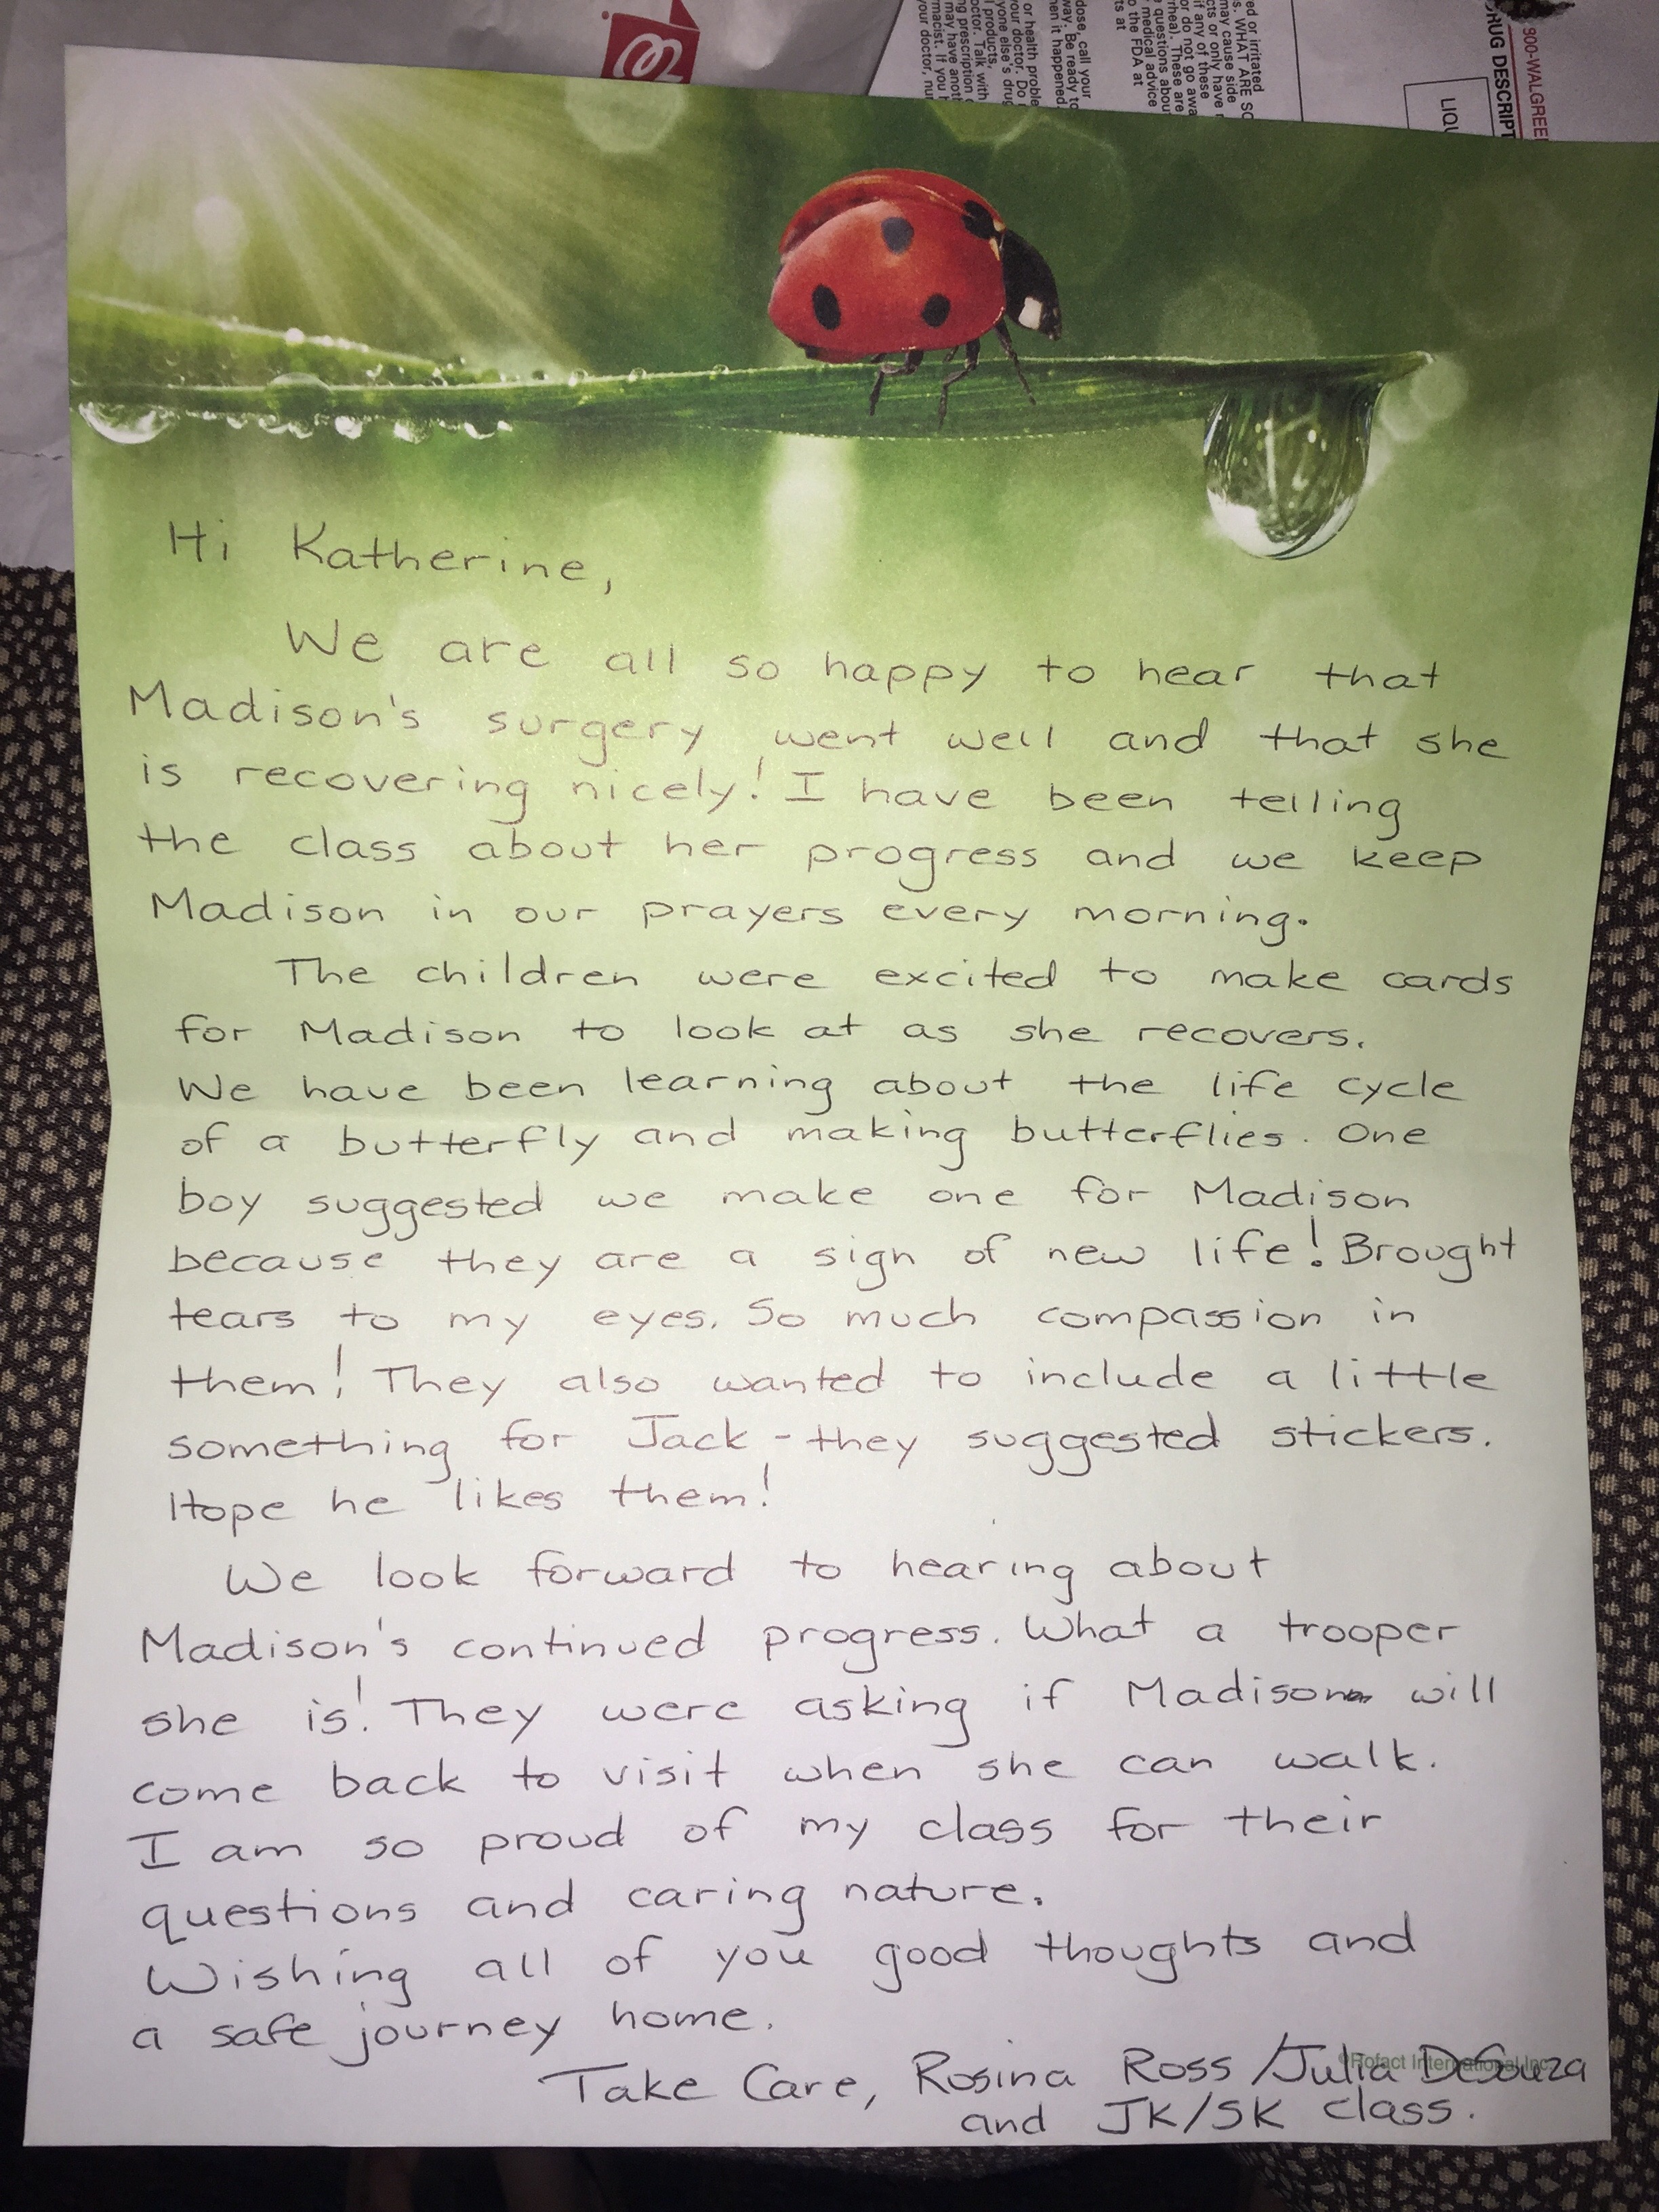 ed or irritated
S. WHAT ARE
may cause side
cts or only have
if any of these
or do not go awa
rhea). These are
questions abou
medical advice
o the FDA at
ts at
dose, call your
way. Be ready to
en it happened.
or health proble
your doctor. Do
yone else's drug
products,
octor. Talk with
ng prescription
may have anoth
rmacist. If you
your doctor, nur
800-WALGREE
RUG DESCRIPT
LIQU
Hi Katherine,
We are all so happy to hear that
Madison's surgery went well and that she
is recovering nicely! I have been telling
the class about her progress and we keep
Madison in our prayers every morning.
The children were excited to make cards
for Madison to look at as she recovers.
We have been learning about the life cycle
of a butterfly and making butterflies. One
boy suggested we make one for Madison
because they are a sign of new life! Brought
tears to my eyes. So much compassion in
them! They also wanted to include a little
something for Jack - they suggested stickers.
Hope he likes them!
We look forward to hearing about
Madison's continued progress. What a trooper
she is! They were asking if Madison will
come back to visit when she can walk.
I am so proud of my class for their
questions and caring nature.
Wishing all of you good thoughts and
a safe journey home.
Take Care, Rosina Ross/Julia DeSouza
and JK/SK class.
©Rofact International Inc.